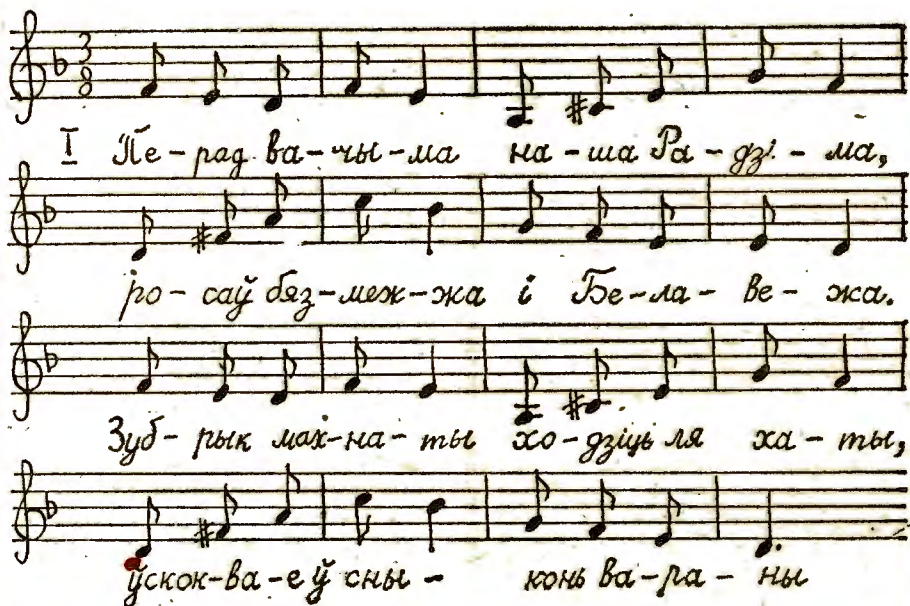 3
8
I Пе-рад ва-чы-ма на-ша Ра-дзі-ма,
ро-саў бяз-меж-жа і Бе-ла-ве-жа.
Зуб-рык мах-на-ты хо-дзіць ля ха-ты,
ўскок-ва-е ў сны - конь ва-ра-ны